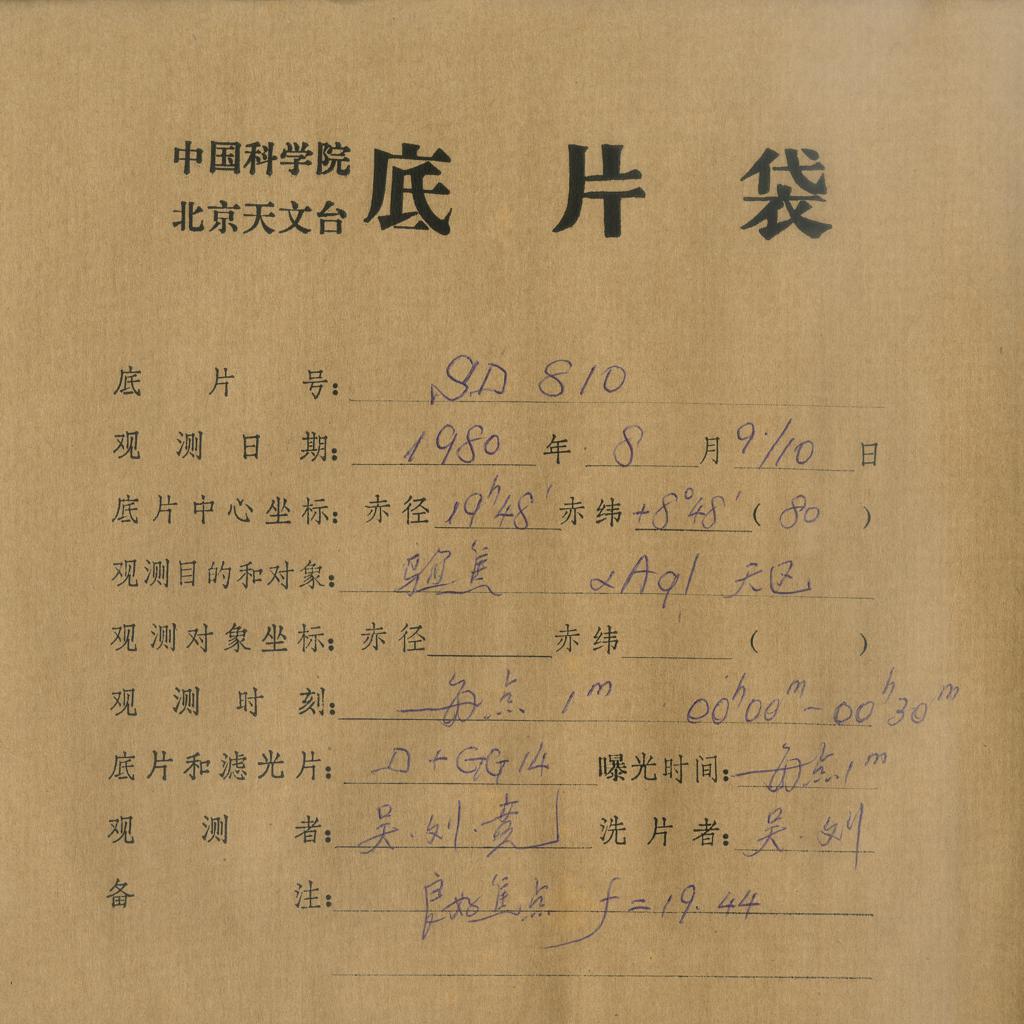 中国科学院
北京天文台
底片袋
底片号: SD 810
观测日期: 1980 年 8 月 9/10 日
底片中心坐标: 赤径 19h48' 赤纬 +8°48' ( 80 )
观测目的和对象: 验焦 αAql 天区
观测对象坐标: 赤径 赤纬 ( )
观测时刻: 每点 1m 00h00m-00h30m
底片和滤光片: D+GG14 曝光时间: 每点1m
观测者: 吴.刘. 洗片者: 吴.刘
备注: 良好焦点 f=19.44